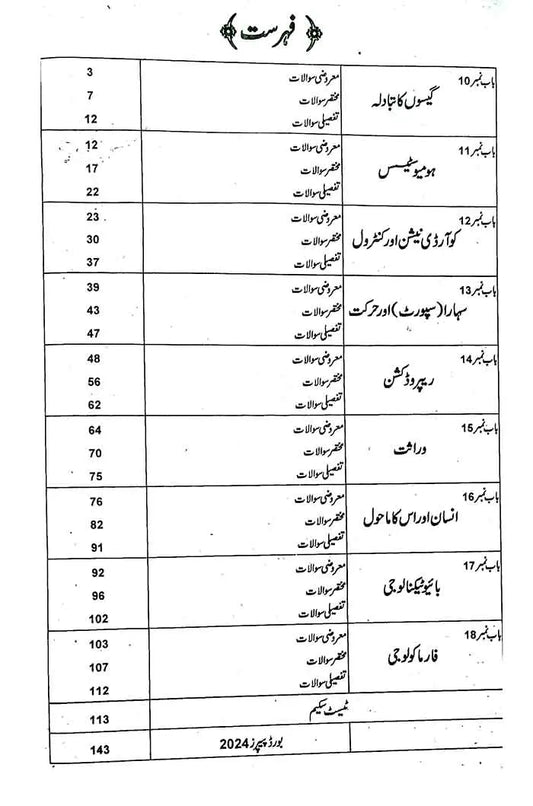 فہرست
باب نمبر 10 گیسوں کا تبادلہ معروضی سوالات 3
مختصر سوالات 7
تفصیلی سوالات 12
باب نمبر 11 ہومیوسٹیسس معروضی سوالات 12
مختصر سوالات 17
تفصیلی سوالات 22
باب نمبر 12 کوآرڈی نیشن اور کنٹرول معروضی سوالات 23
مختصر سوالات 30
تفصیلی سوالات 37
باب نمبر 13 سہارا (سپورٹ) اور حرکت معروضی سوالات 39
مختصر سوالات 43
تفصیلی سوالات 47
باب نمبر 14 ریپروڈکشن معروضی سوالات 48
مختصر سوالات 56
تفصیلی سوالات 62
باب نمبر 15 وراثت معروضی سوالات 64
مختصر سوالات 70
تفصیلی سوالات 75
باب نمبر 16 انسان اور اس کا ماحول معروضی سوالات 76
مختصر سوالات 82
تفصیلی سوالات 91
باب نمبر 17 بائیوٹیکنالوجی معروضی سوالات 92
مختصر سوالات 96
تفصیلی سوالات 102
باب نمبر 18 فارماکولوجی معروضی سوالات 103
مختصر سوالات 107
تفصیلی سوالات 112
ٹیسٹ سکیم 113
بورڈ پیپرز 2024 143